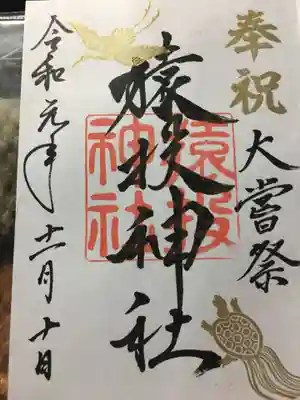 奉祝
大嘗祭
猿投神社
猿投神社
令和元年十一月十日